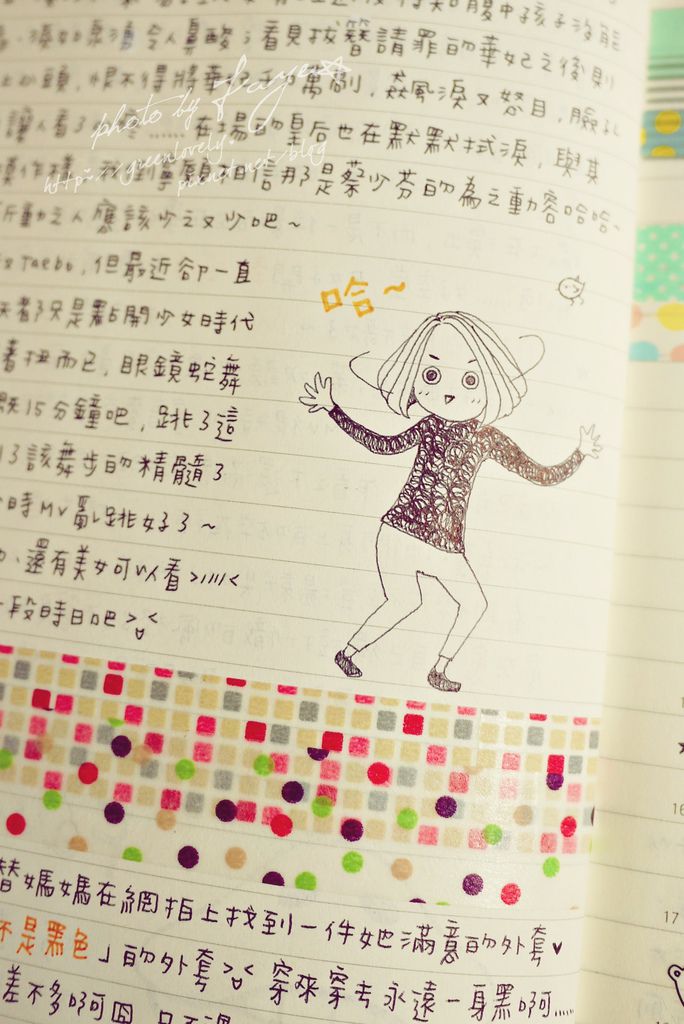 腹中孩子沒能
淚如泉湧令人鼻酸；看見拔簪請罪的華妃之後則
上心頭，恨不得將華妃千刀萬剮，飆風淚又怒目，臉
讓人看了……在場的皇后也在默默拭淚，與其
寧願相信那是蔡少芬的為之動容哈哈~
所動之人應該少之又少吧~
Taebo，但最近卻一直
都只是點開少女時代
著扭而已，眼鏡蛇舞
15分鐘吧，跳了這
了該舞步的精髓了
時MV亂跳好了~
還有美女可以看>////<
段時日吧><
哈~
photo by Faye
http://greenlovely.
pixnet.net/blog
替媽媽在網拍上找到一件她滿意的外套♥
不是黑色」的外套>< 穿來穿去永遠一身黑啊……
差不多啊囧
16
17